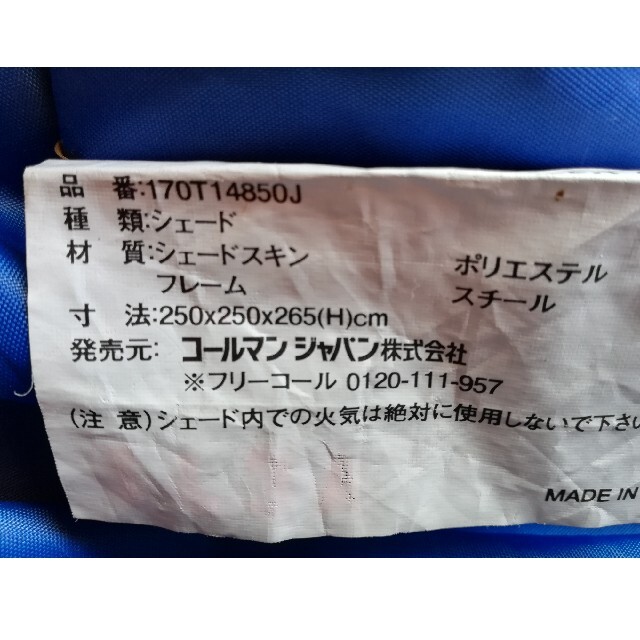 品 番:170T14850J
種 類:シェード
材 質:シェードスキン ポリエステル
フレーム スチール
寸 法:250x250x265(H)cm
発売元: コールマン ジャパン株式会社
※フリーコール 0120-111-957
(注 意)シェード内での火気は絶対に使用しないで下さい
MADE IN